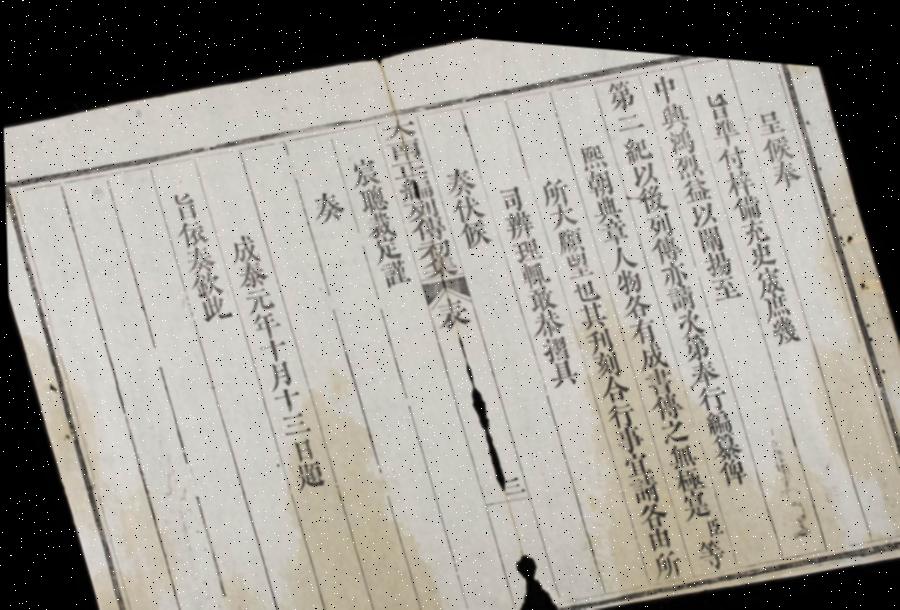 呈候奉
旨準付梓備充史宬庶幾
中興鴻烈益以闡揚至
第二紀以後列傳亦請次第奉行編纂俾
熙朝典章人物各有成書傳之無極寔臣等
所大願望也其刊刻合行事宜請各由所
司辨理輒敢恭摺具
奏伏候
大南正編列傳初集 表 三
宸聰裁定謹
奏
成泰元年十月十三日題
旨依奏欽此